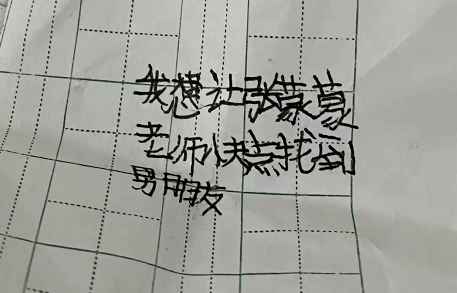 我想让张蒙蒙
老师快点找到
男朋友